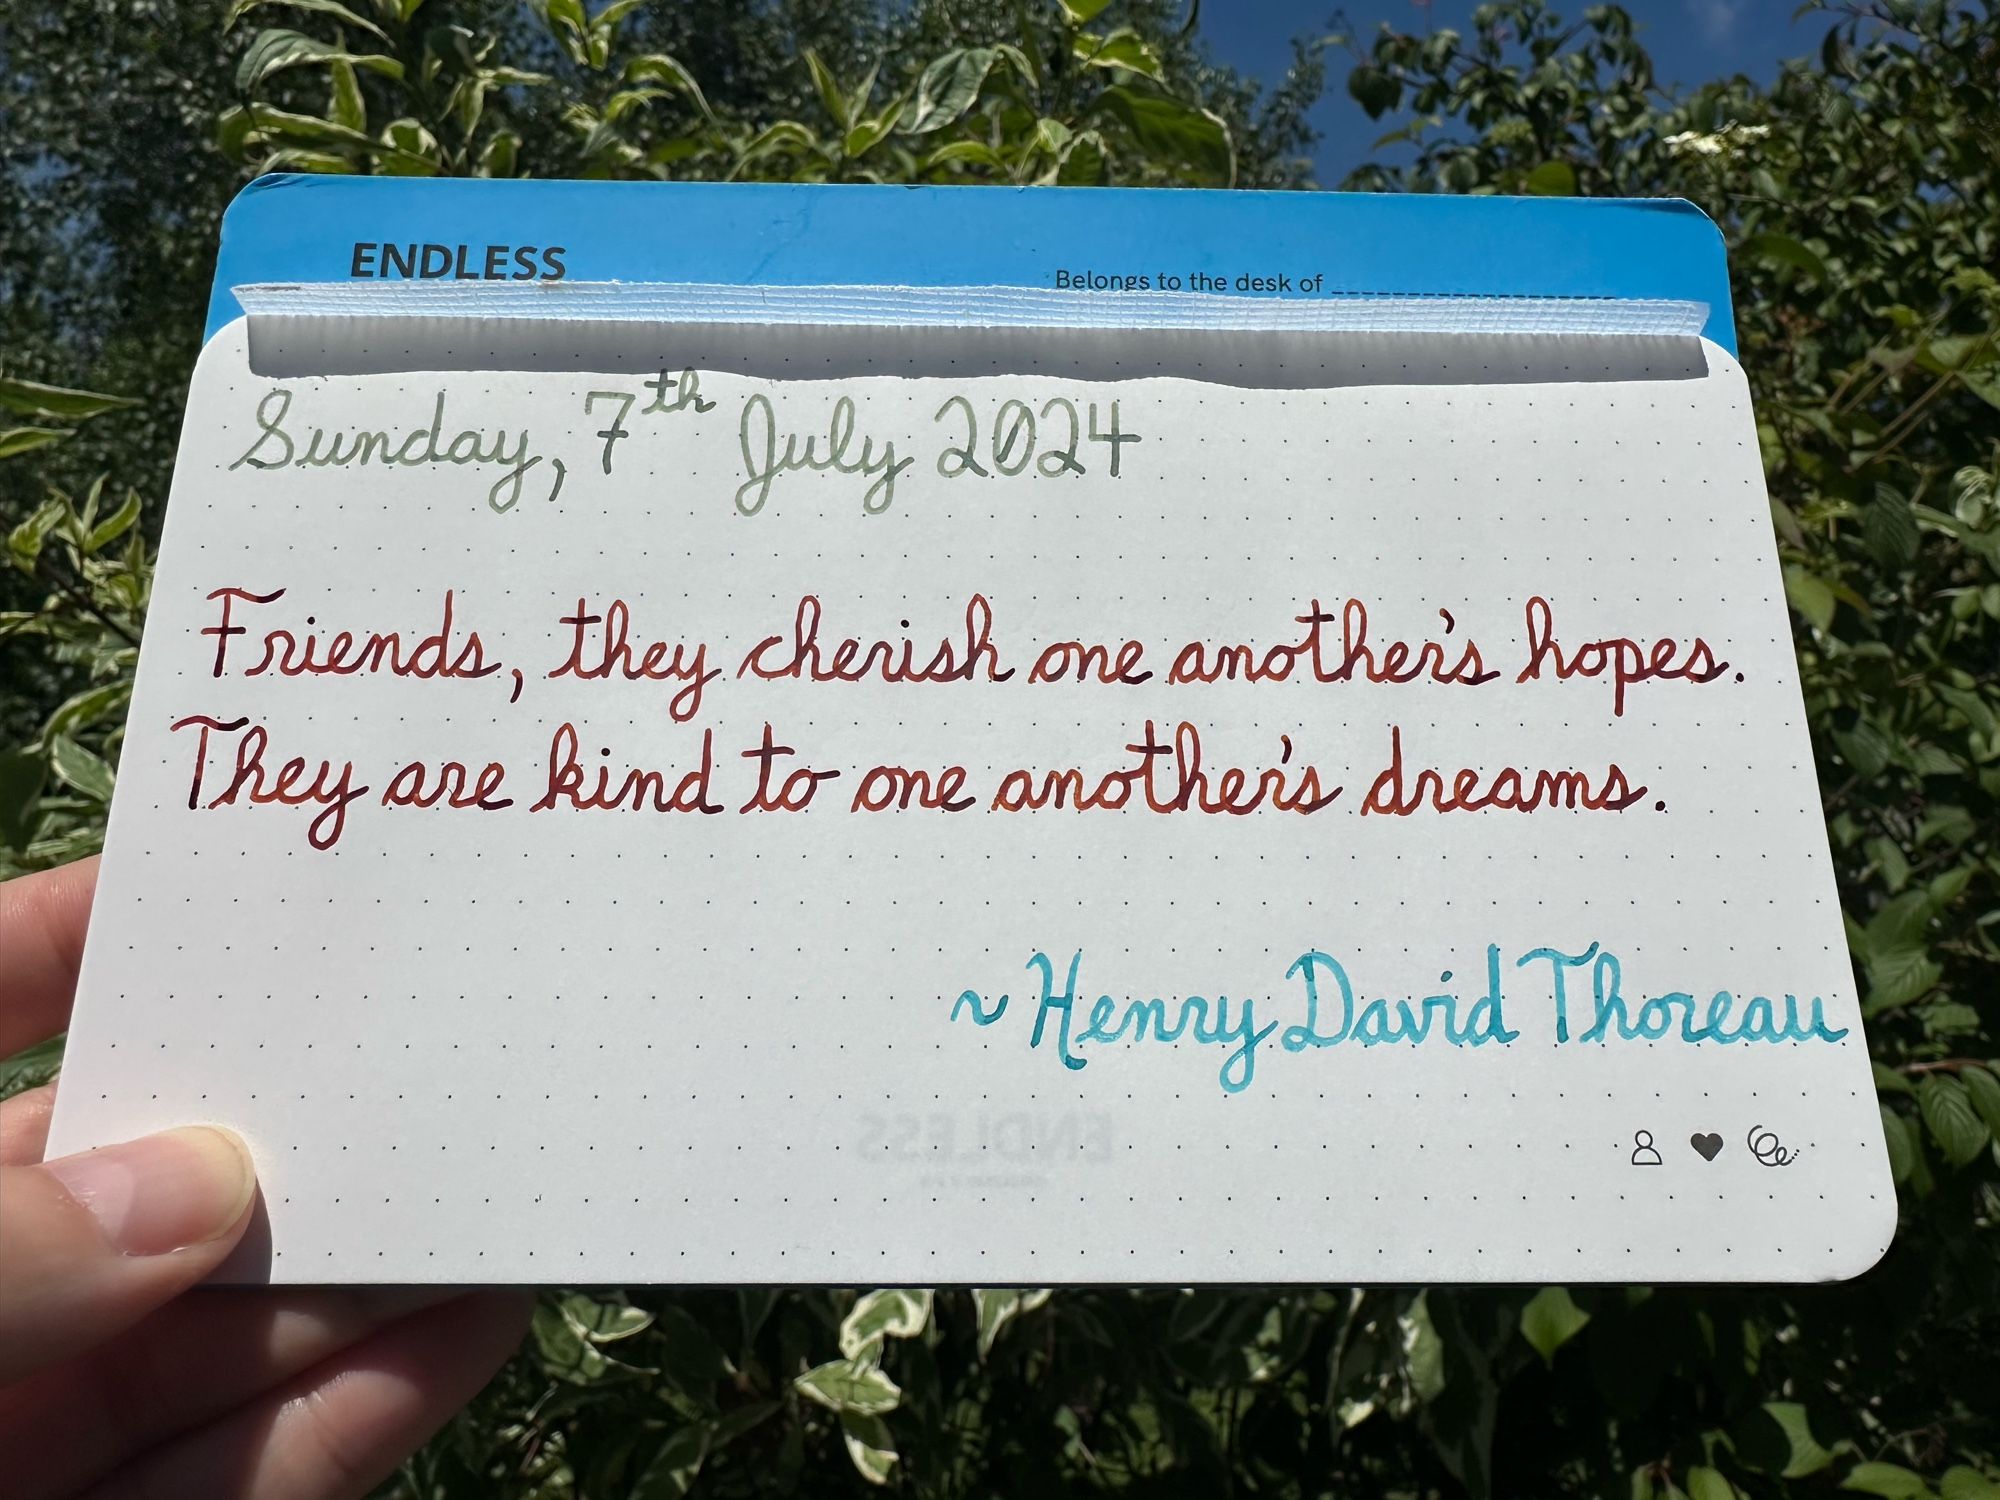 ENDLESS
Belongs to the desk of ____________________
Sunday, 7th July 2024
Friends, they cherish one another's hopes.
They are kind to one another's dreams.
~ Henry David Thoreau
ENDLESS